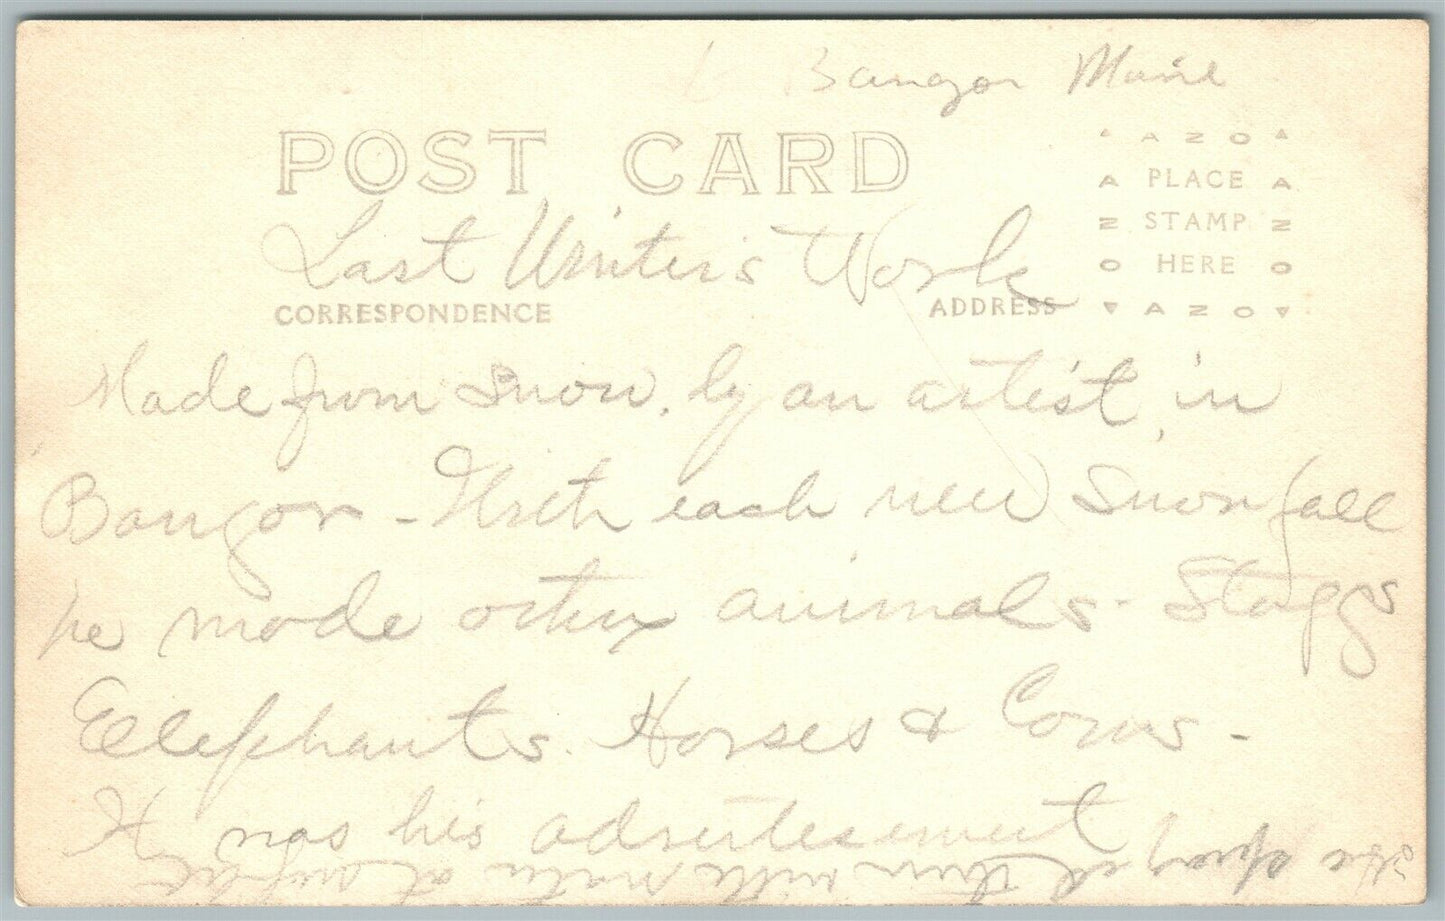 Bangor Maine
POST CARD
AZO
PLACE
STAMP
HERE
AZO
Last Winter's Work
CORRESPONDENCE
ADDRESS
Made from Snow, by an artist, in
Bangor - With each new Snow fall
he made other animals - Staggs
Ellephants. Horses & Cows -
It was his advertesement
He sprayed them with water at night